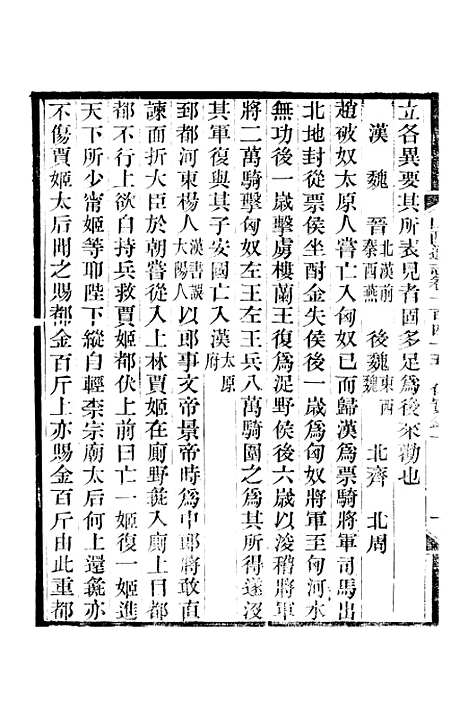 立各異要其所表見者固多足爲後來勸也
漢 魏 晉 北漢前秦西燕 後魏東西魏 北齊 北周
趙破奴太原人嘗亡匈奴已而歸漢爲票騎將軍司馬出
北地封從票侯坐酎金失侯後一歲爲匈奴將軍至匈河水
無功後一歲擊虜樓蘭王復爲浞野侯後六歲以浚稽將軍
將二萬騎擊匈奴左王左王兵八萬騎圍之爲其所得遂沒
其軍復與其子安國亡入漢太原府
郅都河東楊人漢書誤大陽人以郎事文帝景帝時爲中郎將敢直
諫面折大臣於朝嘗從入上林賈姬在廁野彘入廁上目都
都不行上欲自持兵救賈姬都伏上前曰亡一姬復一姬進
天下所少甯姬等耶陛下縱自輕柰宗廟太后何上還彘亦
不傷賈姬太后聞之賜都金百斤上亦賜金百斤由此重都